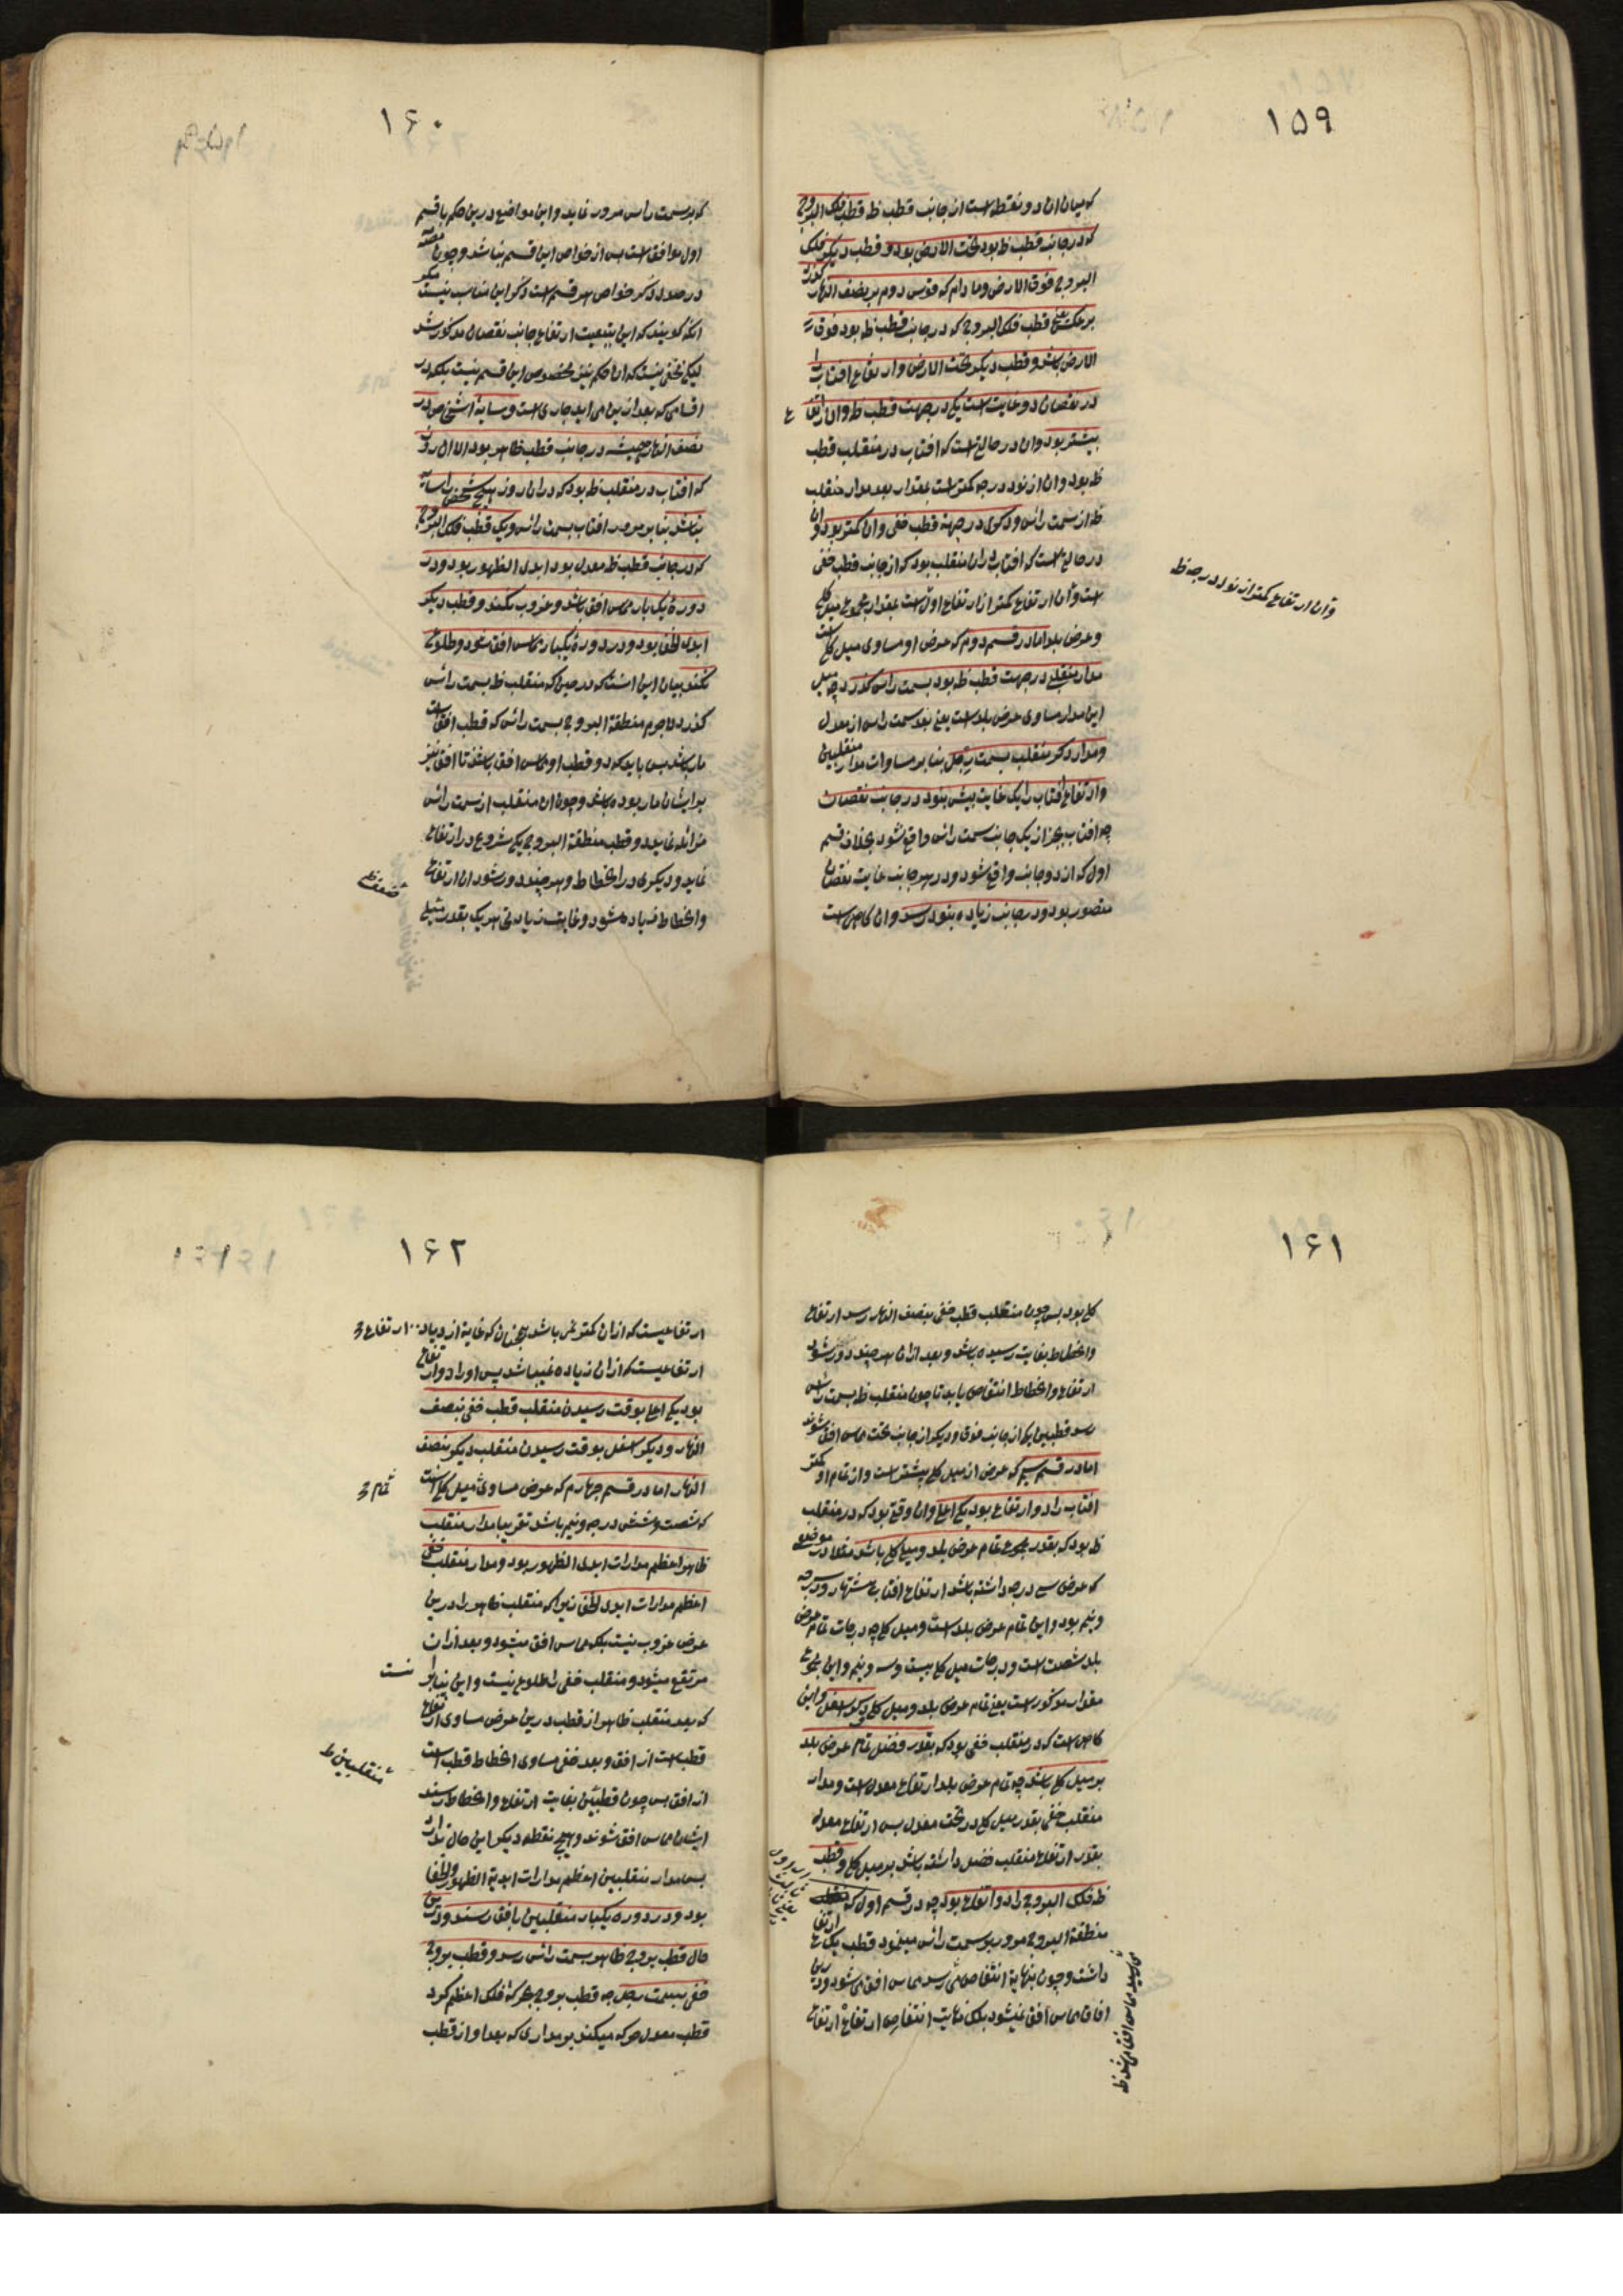 ۱۵۹
که میان ان دو نقطه است از جانب قطب ظ قطب فلک البروج
که در جانب قطب ظ بود تحت الارض بود و قطب دیکر فلک
البروج فوق الارض و ما دام که قوس دوم بر نصف النهار کذرد
بر عکس قطب فلک البروج که در جانب قطب ظ بود فوق
الارض باشد و قطب دیکر تحت الارض و ارتفاع افتاب را
در نقصان دو غایت است یکی در جهت قطب ظ و ان ارتفاع
بیشتر بود و ان در حالی است که افتاب در منقلب قطب
ظ بود و ان از نود درجه کمتر است بمقدار بعد مدار منقلب
ظ از سمت راس و دکری در جهة قطب خفی و ان کمتر بود و ان
در حالی است که افتاب در ان منقلب بود که از جانب قطب خفی
است و ان ارتفاع کمتر از ارتفاع اول است بمقدار مجموع میل کلی
و عرض بلد اما در قسم دوم که عرض او مساوی میل کلی است
مدار منقلبی در جهت قطب ظ بود بسمت راس کذرد چه میل
این مدار مساوی عرض بلد است یعنی بعد سمت راس از معدل
و مدار دکر منقلب بسمت رجل بنا بر مساوات مدار منقلبین
و ارتفاع افتاب را یک غایت بیش نبود در جانب نقصان
چه افتاب بجز از یک جانب سمت راس واقع نشود بخلاف قسم
اول که از دو جانب واقع شود و در هر جانب غایت نقصان
متصور بود و در جانب زیاده بنود رسد و ان خاص است
و ان ارتفاع کمتر از نود درجه ظ
۱۶۰
که بر سمت راس مرور نماید و این مواضع درین حکم با قسم
اول موافق است پس از خواص این قسم نباشد و چون مصنف
در صدد ذکر خواص هر قسم است ذکر این مناسب نیست مکر
انکه کویند که این بتبعیت ارتفاع جانب نقصان مذکور شد
لیکن مخفی نیست که ان حکم نیز مخصوص این قسم نیست بلکه در
اقسامی که بعد ازین می اید جاری است و سایه اشخاص در
نصف النهار همیشه در جانب قطب ظاهر بود الا ان روز
که افتاب در منقلب ظ بود که در ان روز هیچ شخص را سایه
نباشد بنا بر مرور افتاب بسمت راس و یک قطب فلک البروج
که در جانب قطب ظ معدل بود ابدی الظهور بود و در
دوره یک بار مماس افق باشد و غروب نکند و قطب دیکر
ابدی الخفا بود و در دوره یکبار مماس افق شود و طلوع
نکند بیان این انست که در حین که منقلب ظ بسمت راس
کذرد لاجرم منطقة البروج بسمت راس که قطب افق است
مار باشد پس باید که دو قطب او مماس افق باشند تا افق نیز
بر ایشان مار بوده باشد و چون ان منقلب از سمت راس
مزائله نماید دو قطب منطقة البروج یکی شروع در ارتفاع
نماید و دیکری در انحطاط و هر چند دور شود ان ارتفاع
و انحطاط زیاده شود و غایت زیادتی هر یک بقدر میل
ضعف
۱۶۱
کلی بود پس چون منقلب قطب خفی بنصف النهار رسد ارتفاع
و انحطاط بغایت رسیده باشد و بعد از ان هر چند دور شود
ارتفاع و انحطاط انتقاص یابد تا چون منقلب ظ بسمت راس
رسد قطبین یکی از جانب فوق و دیکر از جانب تحت مماس افق شوند
اما در قسم سیم که عرض از میل کلی بیشتر است و از تمام او کمتر
افتاب را دو ارتفاع بود یکی اعلی و ان وقتی بود که در منقلب
ظ بود که بقدر مجموع تمام عرض بلد و میل کلی باشد مثلا در موضعی
که عرض سی درجه داشته باشد ارتفاع افتاب هشتاد و سه درجه
و نیم بود و این تمام عرض بلد است و میل کلی چه درجات تمام عرض
بلد شصت است و درجات میل کلی بیست و سه و نیم و این مجموع
مقدار مذکور است یعنی تمام عرض بلد و میل کلی و دیکری اسفل و این
خاص است که در منقلب خفی بود که بقدر فضل تمام عرض بلد
بر میل کلی باشد چه تمام عرض بلد ارتفاع معدل است و مدار
منقلب خفی بقدر میل کلی در تحت معدل پس ارتفاع معدل
بقدر ارتفاع منقلب فضل داشته باشد بر میل کلی و قطب
ظ فلک البروج را دو ارتفاع بود چه در قسم اول که
منطقة البروج مرور بر سمت راس مینمود قطب یک ارتفاع
داشت و چون بنهایة انتقاص می رسد مماس افق می شود و درین
افاق مماس افق نمیشود بلکه نهایت انتقاص ارتفاع ارتفاع
می رسید مماس افق می شد ظ
۱۶۲
ارتفاعیست که ازان کمتر نمی باشد بجنان که غایة ازدیاد ارتفاع
ارتفاعیست که ازان زیاده نمیباشد پس او را دو ارتفاع
بود یکی اعلی بوقت رسیدن منقلب قطب خفی بنصف
النهار و دیکر اسفل بوقت رسیدن منقلب دیکر بنصف
النهار اما در قسم چهارم که عرض مساوی میل کلی است
تمام
که شصت و شش درجه و نیم باشد تقریبا مدار منقلب
ظاهر اعظم مدارات ابدی الظهور بود و مدار منقلب خفی
اعظم مدارات ابدی الخفا زیرا که منقلب ظاهر را درین
عرض غروب نیست بلکه مماس افق میشود و بعد ازان
مرتفع میشود و منقلب خفی را طلوع نیست و این بنا بر انست
که بعد منقلب ظاهر از قطب درین عرض مساوی ارتفاع
قطب است از افق و بعد خفی مساوی انحطاط قطب است
از افق پس چون قطبین بغایت ارتفاع و انحطاط رسند
منقلبین ظ
ایشان مماس افق شوند و هیچ نقطه دیکر این حال ندارد
پس مدار منقلبین اعظم مدارات ابدیة الظهور و الخفا
بود و در دوره یکبار منقلبین بافق رسند و درین
حال قطب بروج ظاهر بسمت راس رسد و قطب بروج
خفی بسمت رجل چه قطب بروج بحرکة فلک اعظم کرد
قطب معدل حرکه میکند بر مداری که بعد او از قطب